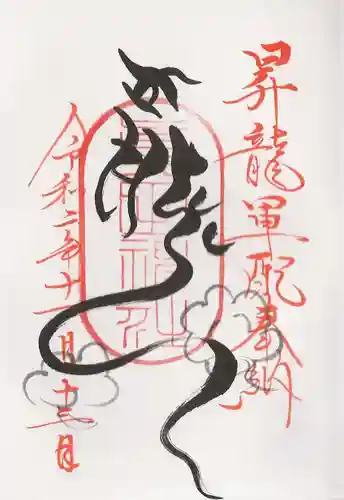 昇龍運配奉納
龍
令和二年十一月十三日